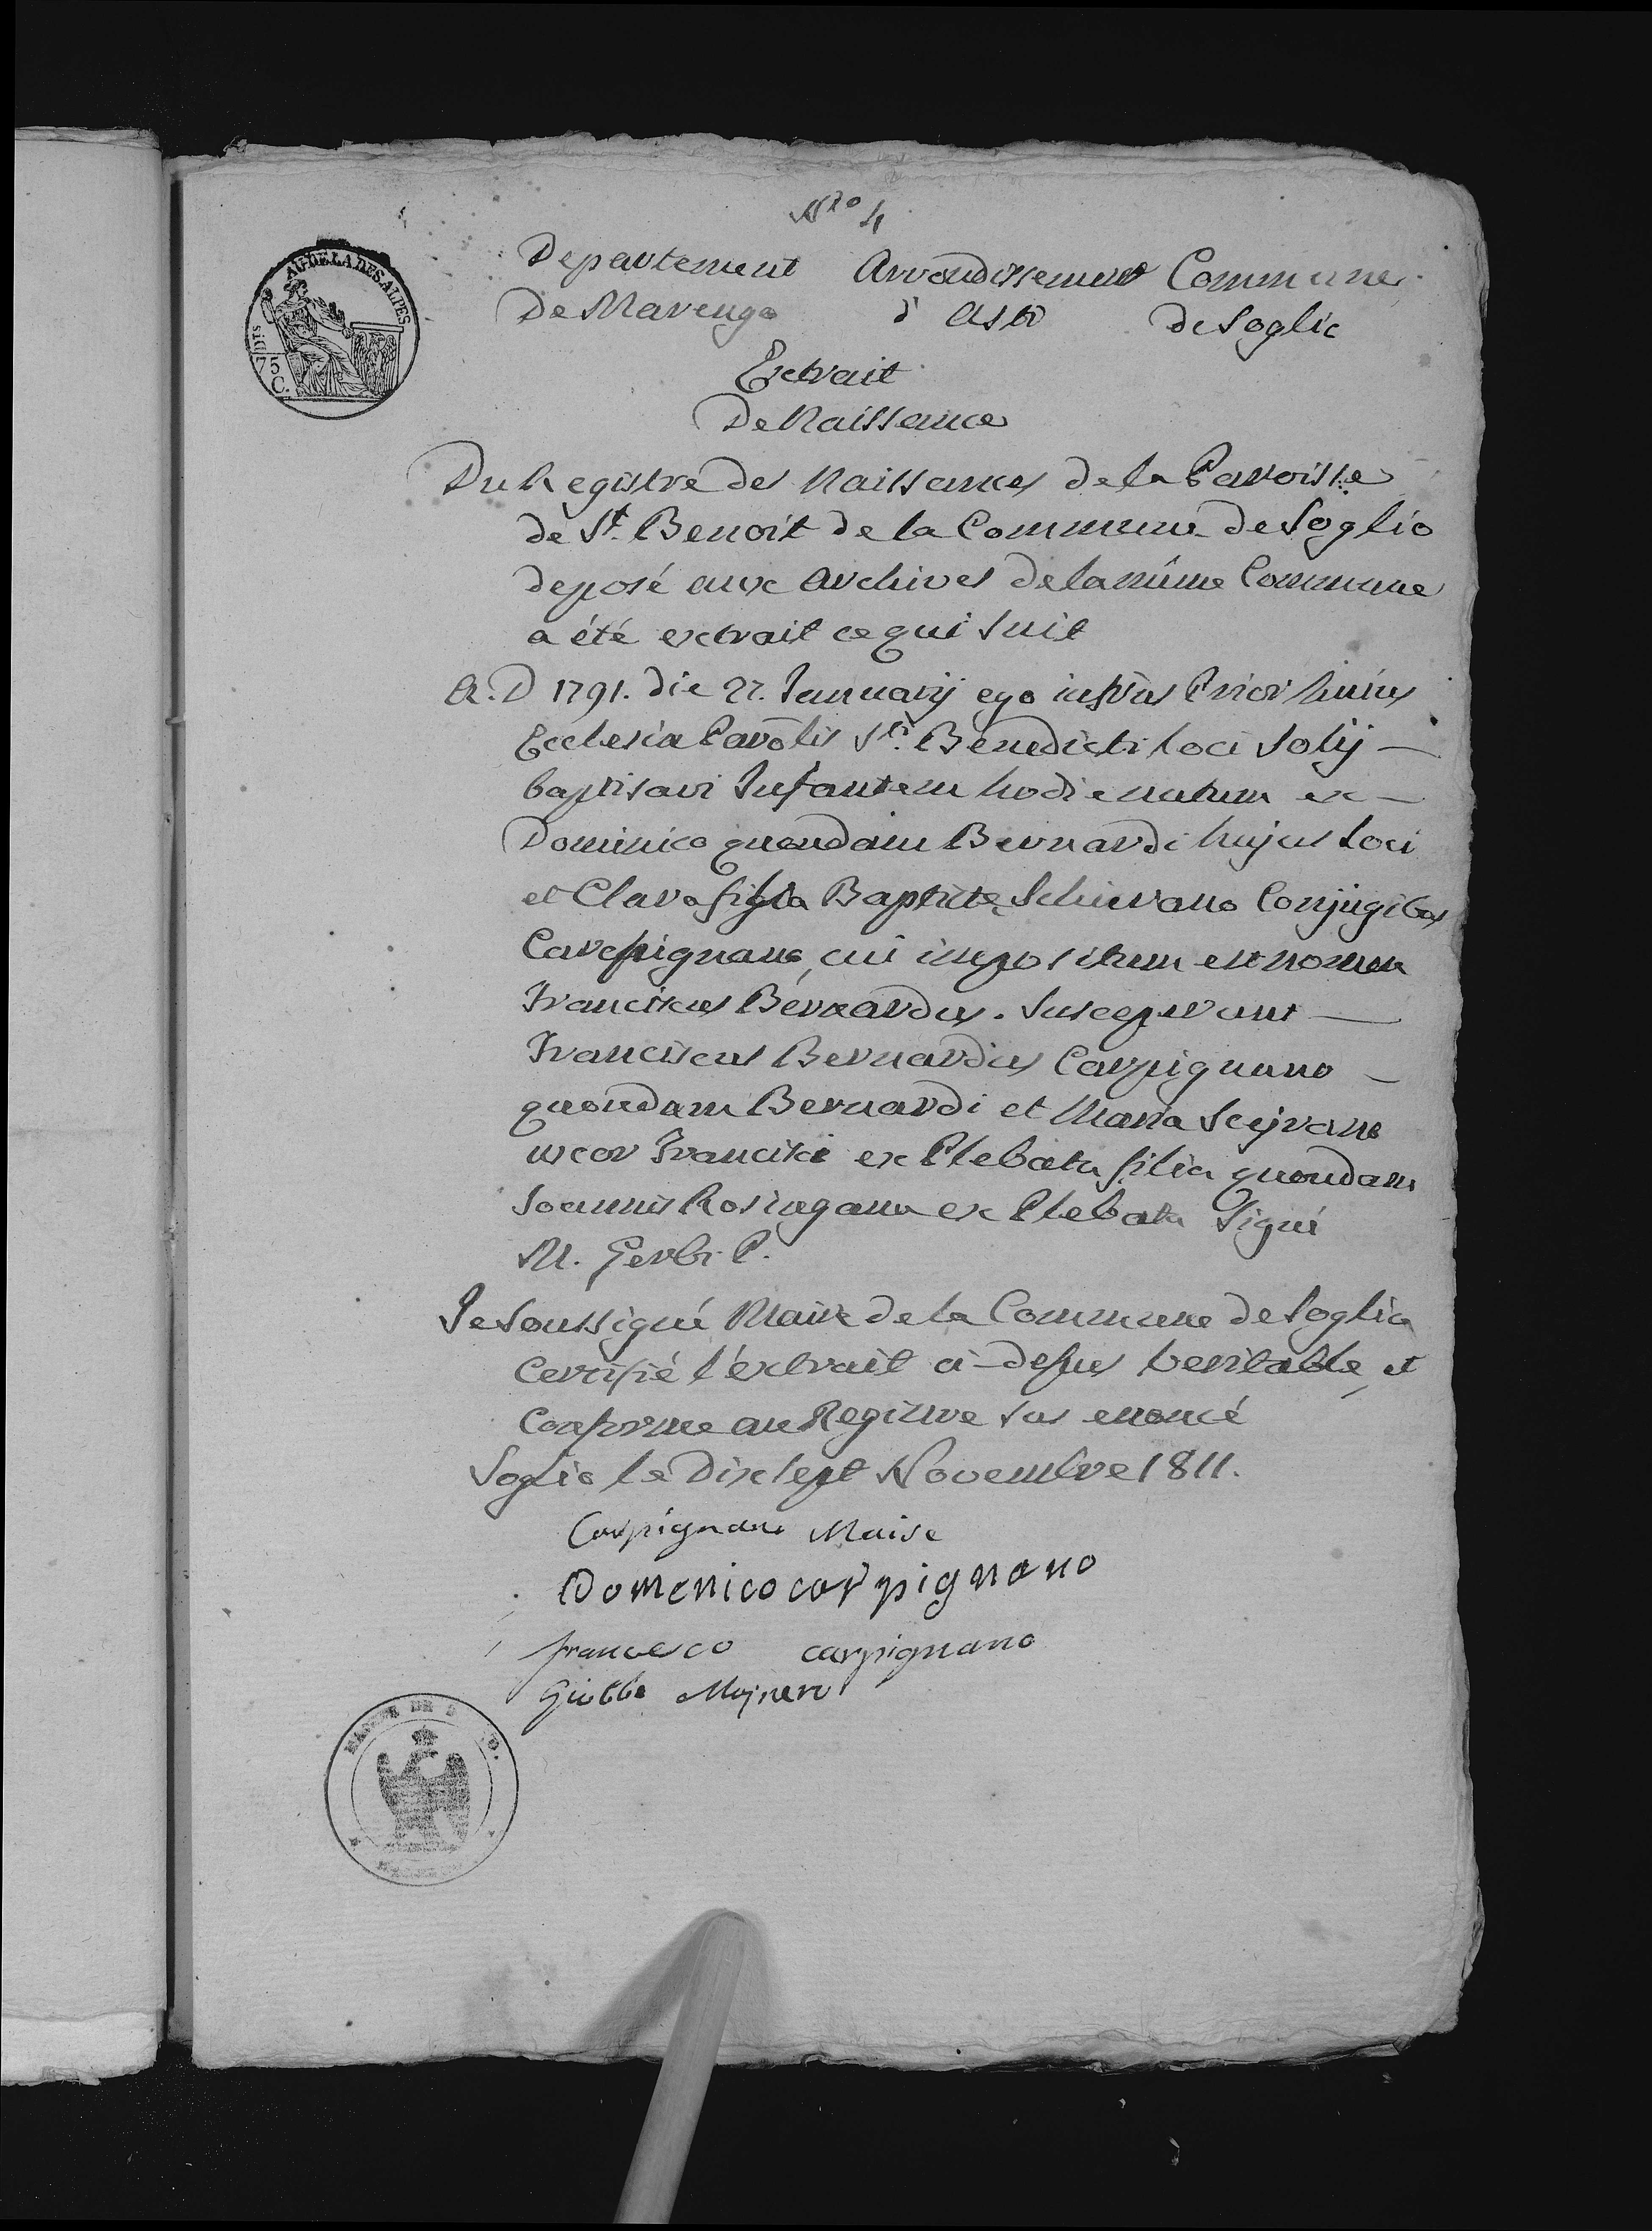 Nro 4
AU DELA DES ALPES
DIIS
75
C.
Departement Arrondissement Commune
De Marengo d'Asti de Soglio
Extrait
De Naissance
Du Registre des Naissances de la Paroisse
de St. Benoit de la Commune de Soglio
deposé aux Archives de la même Commune
a été extrait ce qui suit
A. D 1791. die 27. Januarij ego infrūs Prior huius
Ecclesia Parōlis Sti. Benedicti loci Solij —
baptisavi Infantem hodie natum ex —
Dominico quondam Bernardi hujus loci
et Clara figlia Baptiste Schierano Conjugibus
Carpignano, cui impositum est nomen
Franciscus Bernardus. Susceperunt —
Franciscus Bernardus Carpignano —
quondam Bernardi et Maria
uxor Francisci ex Plebata filia quondam
Joannis ex Plebata Signé
M. Gerbi P.
Je Soussigné Maire de la Commune de Soglio
Certifié l'extrait ci-dessus veritable, et
Conforme au Registre sus enoncé
Soglio le Dix sept Novembre 1811.
Carpignano Maire
Domenico carpignano
francesco carpignano
MAIRIE DE